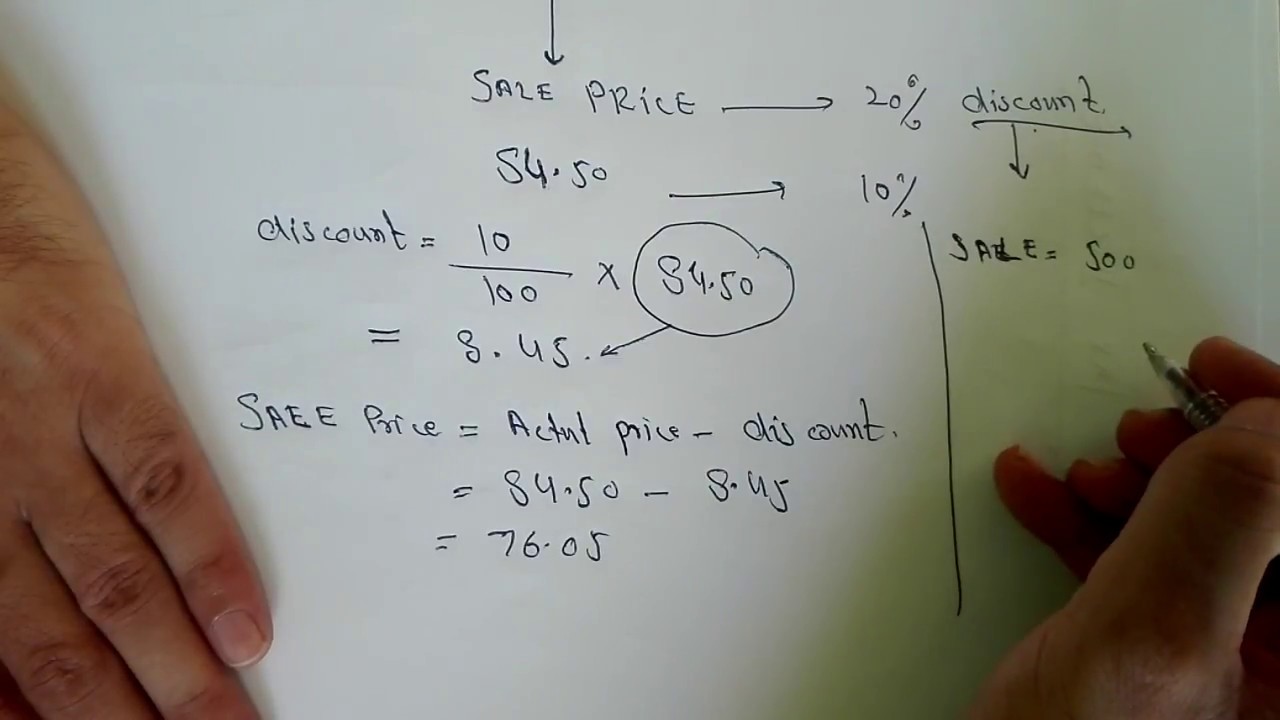 SALE PRICE → 20% discount
84.50 → 10%
discount = 10/100 × 84.50
= 8.45.
SALE Price = Actul price - discount.
= 84.50 - 8.45
= 76.05
SALE = 500